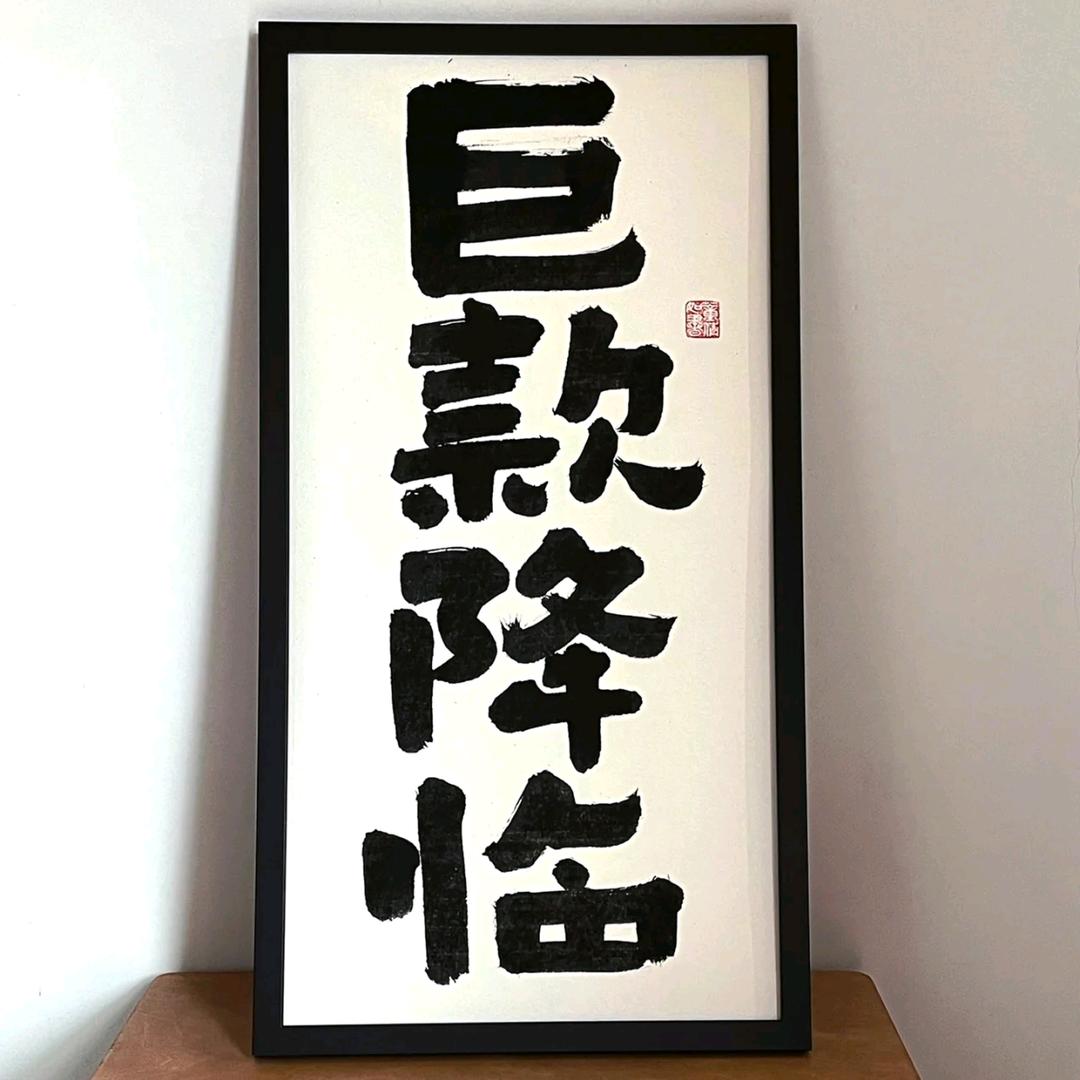 巨款降临